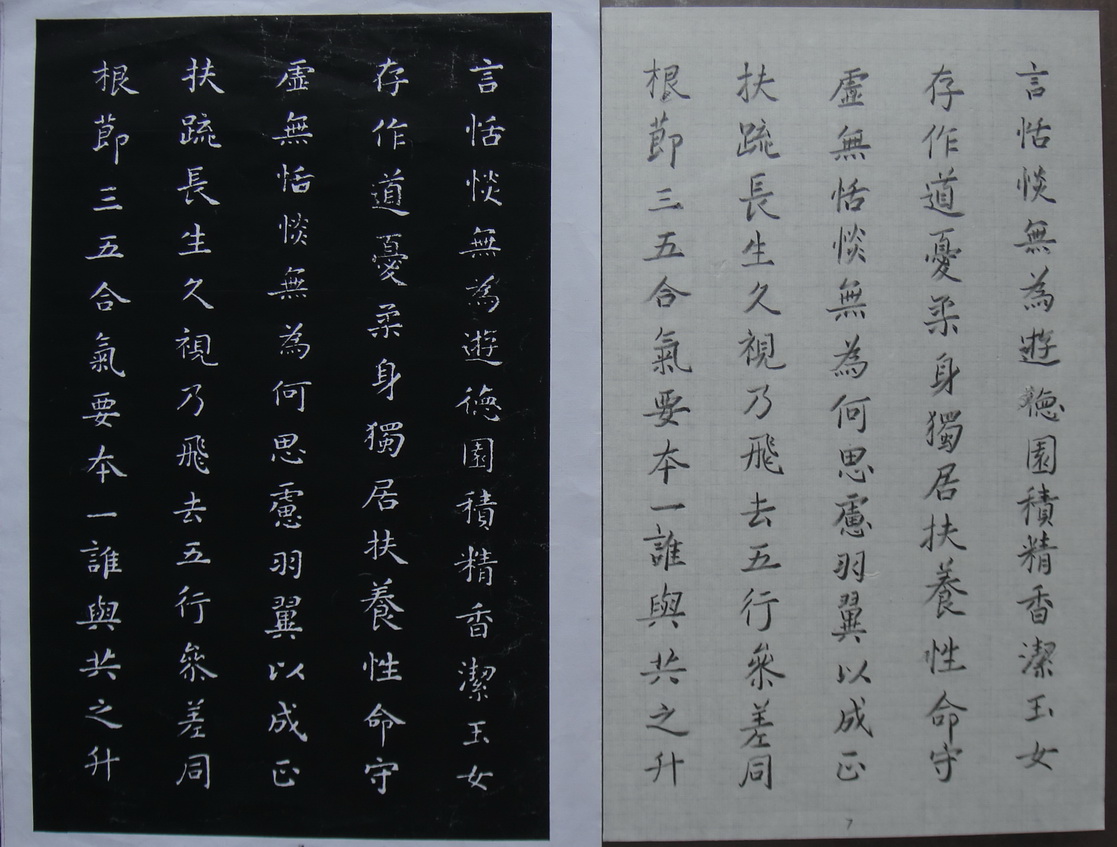 言恬惔無為遊德園積精香潔玉女
存作道憂柔身獨居扶養性命守
虛無恬惔無為何思慮羽翼以成正
扶疏長生久視乃飛去五行參差同
根節三五合氣要本一誰與共之升
言恬惔無為遊德園積精香潔玉女
存作道憂柔身獨居扶養性命守
虛無恬惔無為何思慮羽翼以成正
扶疏長生久視乃飛去五行參差同
根節三五合氣要本一誰與共之升
7